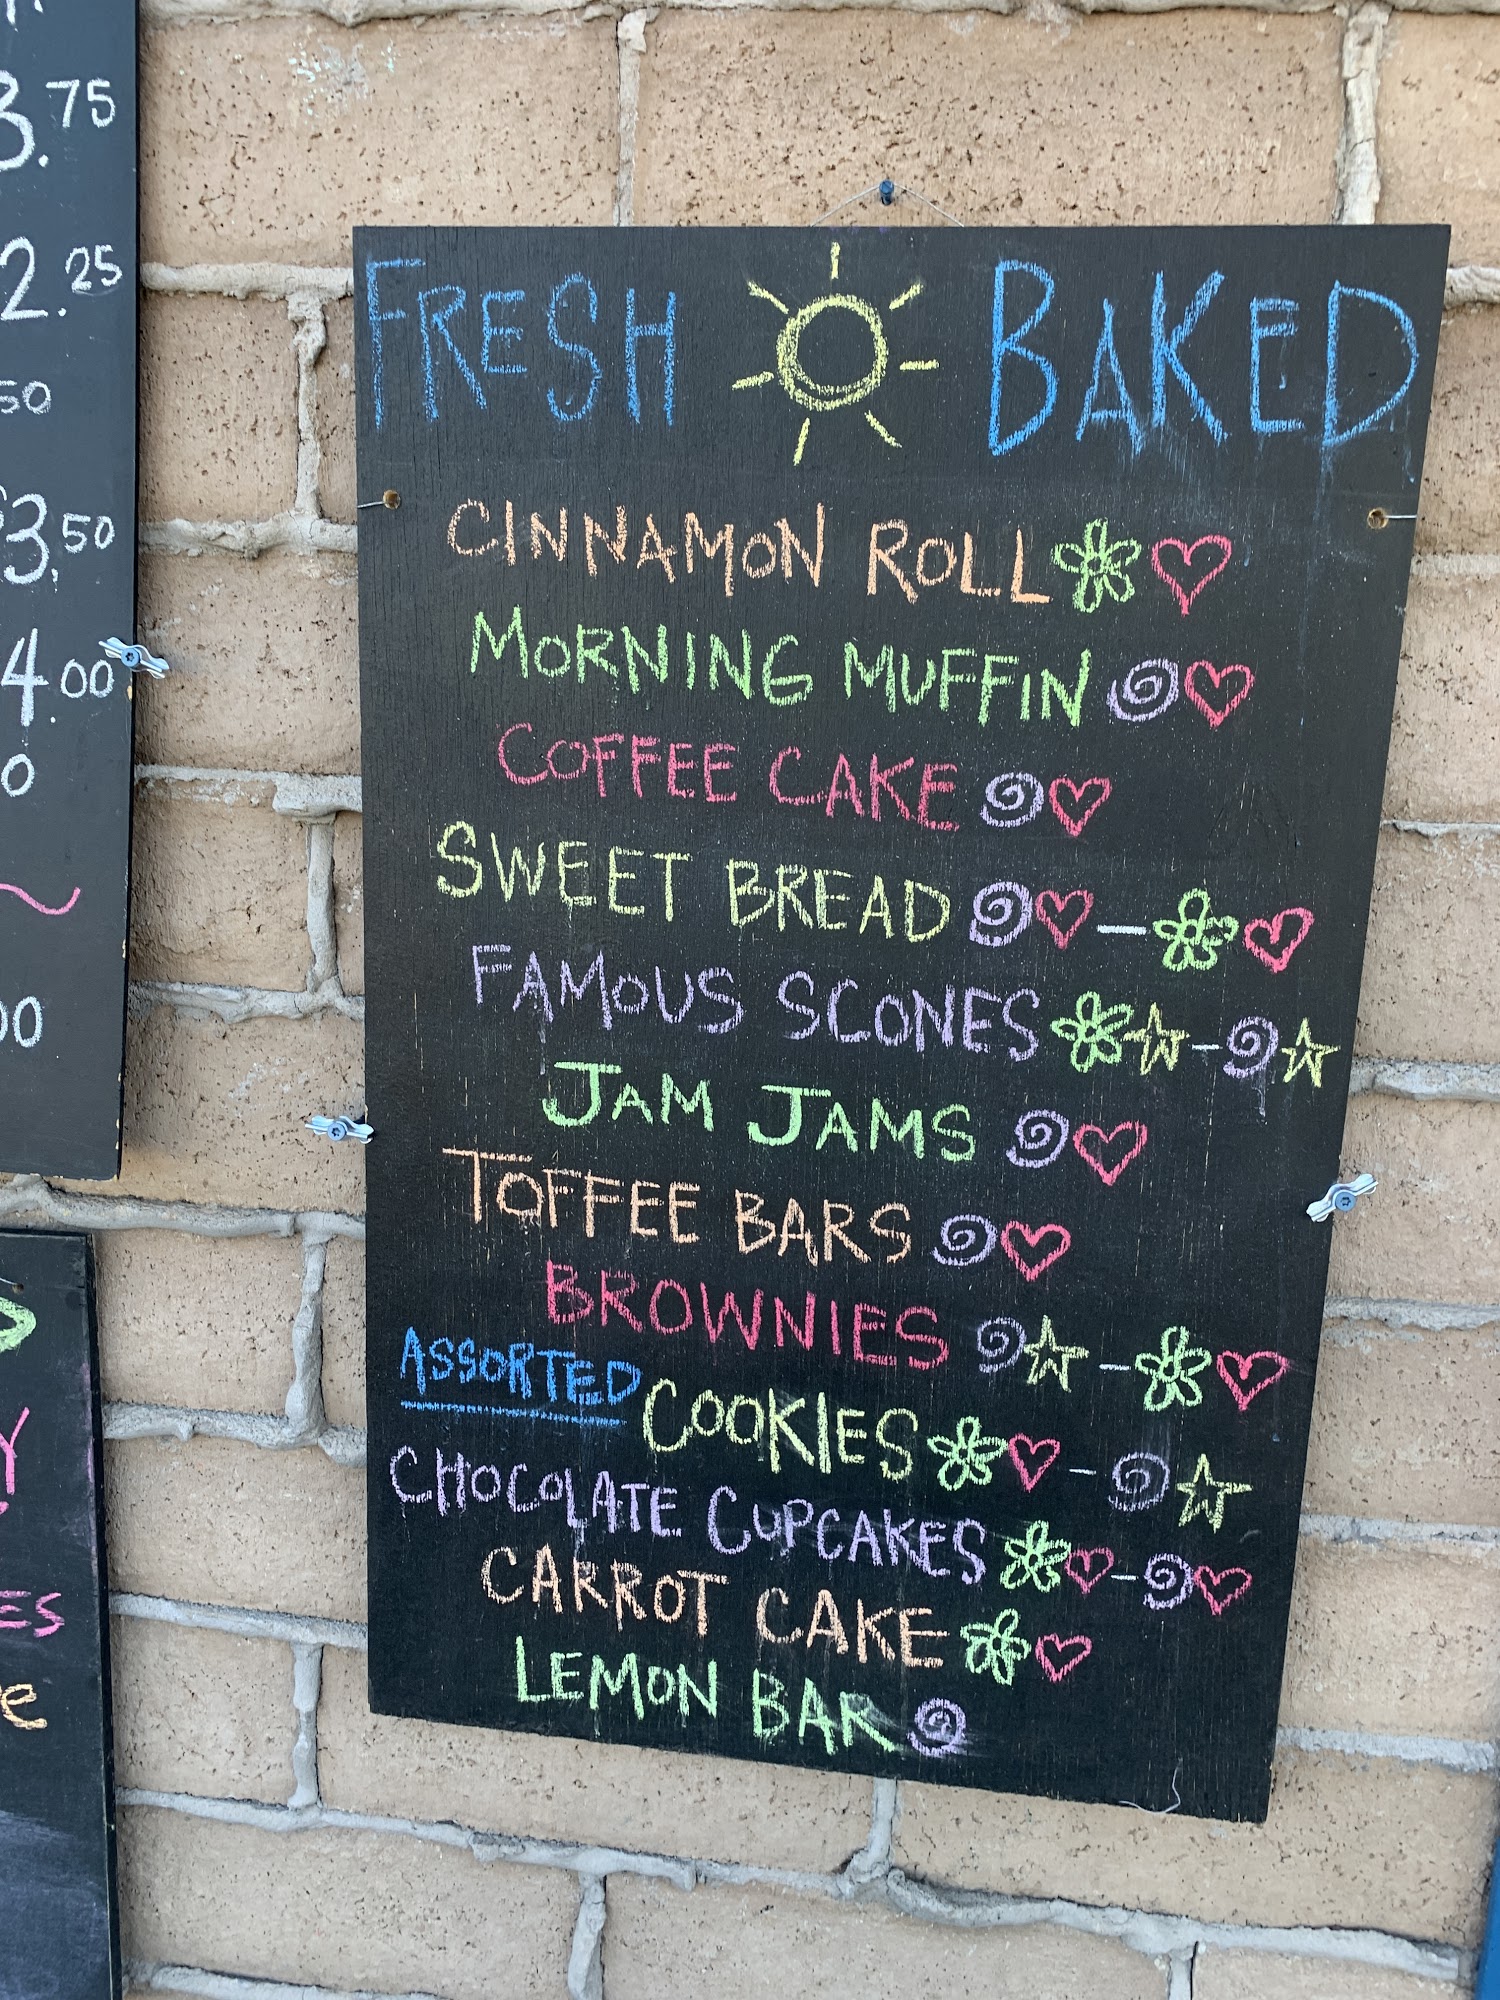 3.75
2.25
50
3.50
4.00
0
00
Y
ES
e
FRESH BAKED
CINNAMON ROLL
MORNING MUFFIN
COFFEE CAKE
SWEET BREAD
FAMOUS SCONES
JAM JAMS
TOFFEE BARS
BROWNIES
ASSORTED COOKIES
CHOCOLATE CUPCAKES
CARROT CAKE
LEMON BAR